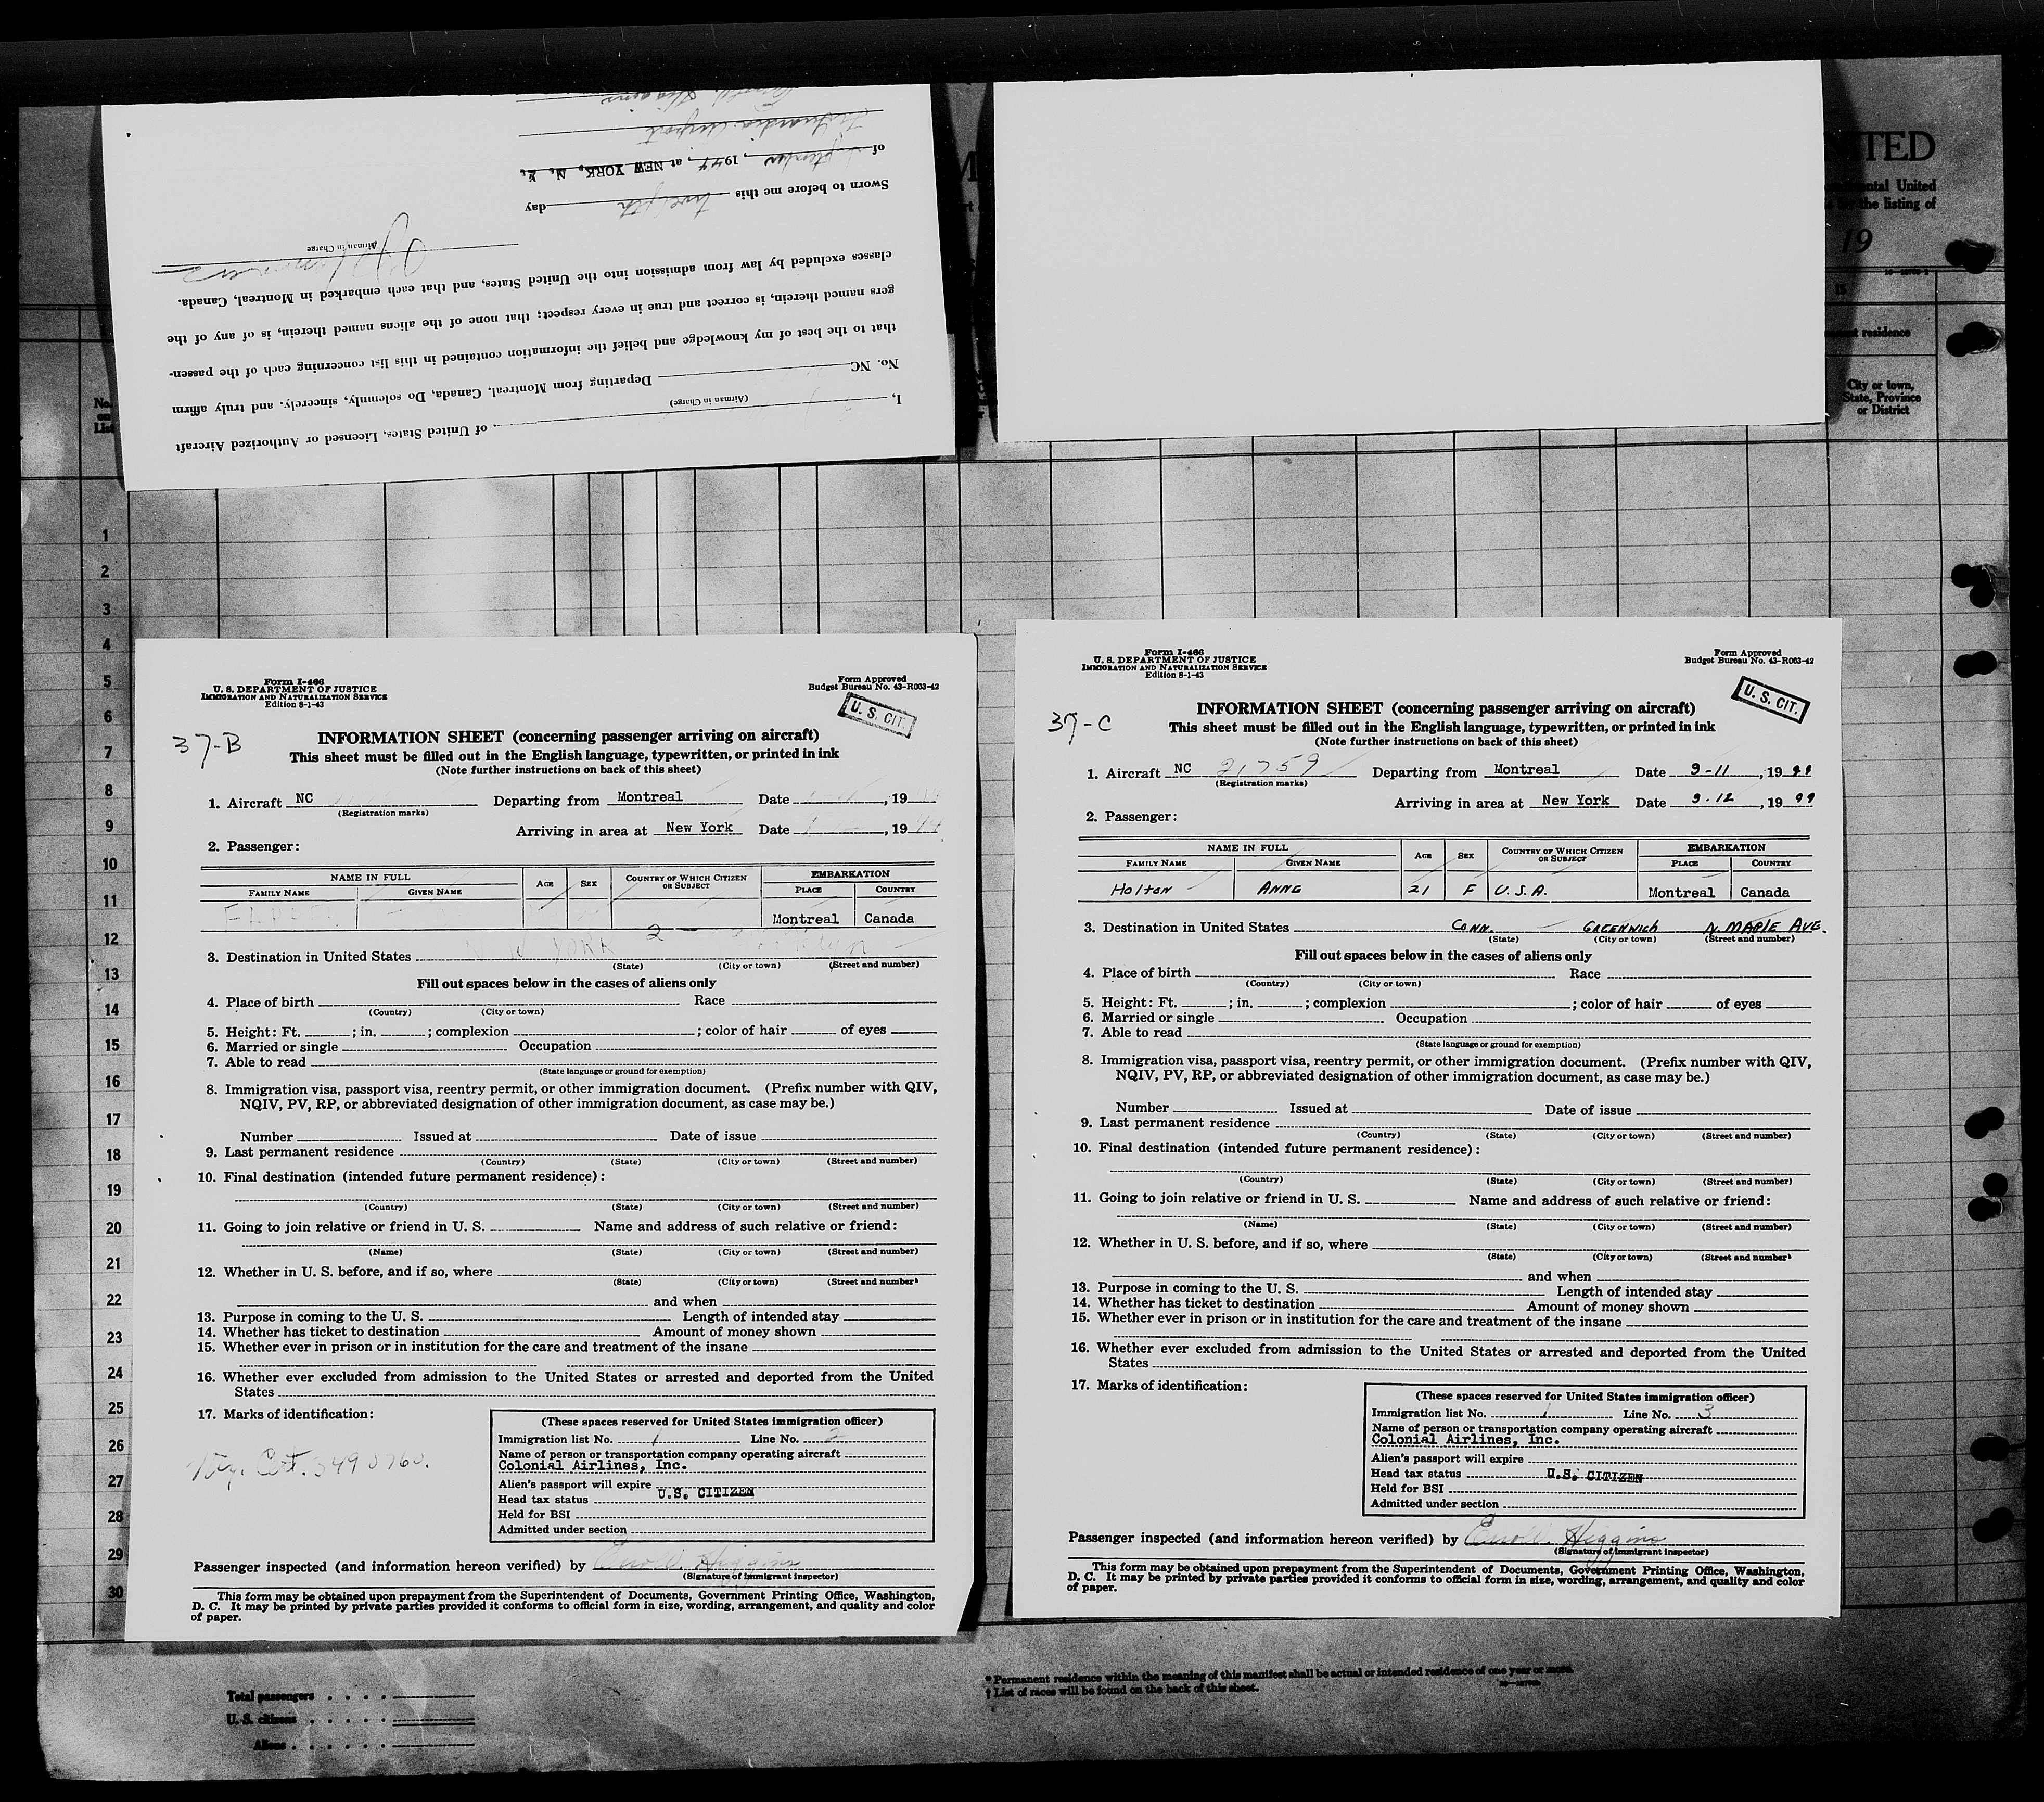 I, of United States. Licensed or Authorized Aircraft
(Airman in Charge)
No. NC Departing from Montreal, Canada, Do solemnly, sincerely, and truly affirm
that to the best of my knowledge and belief the information contained in this list concerning each of the passen-
gers named therein, is correct and true in every respect; that none of the aliens named therein, is of any of the
classes excluded by law from admission into the United States, and that each embarked in Montreal, Canada.
Airman in Charge
Sworn to before me this twelfth day
of September, 1944, at NEW YORK, N. Y.
TED
ental United
the listing of
19
residence
City or town,
State, Province
or District
No.
on
List
1
2
3
4
5
6
7
8
9
10
11
12
13
14
15
16
17
18
19
20
21
22
23
24
25
26
27
28
29
30
Form I-466
U. S. DEPARTMENT OF JUSTICE
IMMIGRATION AND NATURALIZATION SERVICE
Edition 8-1-43
Form Approved
Budget Bureau No. 43-R063-42
U. S. CIT.
37-B
INFORMATION SHEET (concerning passenger arriving on aircraft)
This sheet must be filled out in the English language, typewritten, or printed in ink
(Note further instructions on back of this sheet)
1. Aircraft NC Departing from Montreal Date , 19
(Registration marks)
Arriving in area at New York Date , 19
2. Passenger:
NAME IN FULL AGE SEX COUNTRY OF WHICH CITIZEN OR SUBJECT EMBARKATION
FAMILY NAME GIVEN NAME PLACE COUNTRY
Montreal Canada
3. Destination in United States NEW YORK
(State) (City or town) (Street and number)
Fill out spaces below in the cases of aliens only
4. Place of birth Race
(Country) (City or town)
5. Height: Ft. ; in. ; complexion ; color of hair of eyes
6. Married or single Occupation
7. Able to read
(State language or ground for exemption)
8. Immigration visa, passport visa, reentry permit, or other immigration document. (Prefix number with QIV,
NQIV, PV, RP, or abbreviated designation of other immigration document, as case may be.)
Number Issued at Date of issue
9. Last permanent residence
(Country) (State) (City or town) (Street and number)
10. Final destination (intended future permanent residence):
(Country) (State) (City or town) (Street and number)
11. Going to join relative or friend in U. S. Name and address of such relative or friend:
(Name) (State) (City or town) (Street and number)
12. Whether in U. S. before, and if so, where
(State) (City or town) (Street and number)
and when
13. Purpose in coming to the U. S. Length of intended stay
14. Whether has ticket to destination Amount of money shown
15. Whether ever in prison or in institution for the care and treatment of the insane
16. Whether ever excluded from admission to the United States or arrested and deported from the United
States
17. Marks of identification:
(These spaces reserved for United States immigration officer)
Immigration list No. 1 Line No. 2
Name of person or transportation company operating aircraft
Colonial Airlines, Inc.
Alien's passport will expire
Head tax status U.S. CITIZEN
Held for BSI
Admitted under section
Passenger inspected (and information hereon verified) by Higgins
(Signature of immigrant inspector)
This form may be obtained upon prepayment from the Superintendent of Documents, Government Printing Office, Washington,
D. C. It may be printed by private parties provided it conforms to official form in size, wording, arrangement, and quality and color
of paper.
Form I-466
U. S. DEPARTMENT OF JUSTICE
IMMIGRATION AND NATURALIZATION SERVICE
Edition 8-1-43
Form Approved
Budget Bureau No. 43-R063-42
U. S. CIT.
37-C
INFORMATION SHEET (concerning passenger arriving on aircraft)
This sheet must be filled out in the English language, typewritten, or printed in ink
(Note further instructions on back of this sheet)
1. Aircraft NC 21759 Departing from Montreal Date 9-11, 1944
(Registration marks)
Arriving in area at New York Date 9-12, 1944
2. Passenger:
NAME IN FULL AGE SEX COUNTRY OF WHICH CITIZEN OR SUBJECT EMBARKATION
FAMILY NAME GIVEN NAME PLACE COUNTRY
Holton ANNE 21 F U.S.A. Montreal Canada
3. Destination in United States CONN. GREENWICH N. MAPLE AVE.
(State) (City or town) (Street and number)
Fill out spaces below in the cases of aliens only
4. Place of birth Race
(Country) (City or town)
5. Height: Ft. ; in. ; complexion ; color of hair of eyes
6. Married or single Occupation
7. Able to read
(State language or ground for exemption)
8. Immigration visa, passport visa, reentry permit, or other immigration document. (Prefix number with QIV,
NQIV, PV, RP, or abbreviated designation of other immigration document, as case may be.)
Number Issued at Date of issue
9. Last permanent residence
(Country) (State) (City or town) (Street and number)
10. Final destination (intended future permanent residence):
(Country) (State) (City or town) (Street and number)
11. Going to join relative or friend in U. S. Name and address of such relative or friend:
(Name) (State) (City or town) (Street and number)
12. Whether in U. S. before, and if so, where
(State) (City or town) (Street and number)
and when
13. Purpose in coming to the U. S. Length of intended stay
14. Whether has ticket to destination Amount of money shown
15. Whether ever in prison or in institution for the care and treatment of the insane
16. Whether ever excluded from admission to the United States or arrested and deported from the United
States
17. Marks of identification:
(These spaces reserved for United States immigration officer)
Immigration list No. 1 Line No. 3
Name of person or transportation company operating aircraft
Colonial Airlines, Inc.
Alien's passport will expire
Head tax status U.S. CITIZEN
Held for BSI
Admitted under section
Passenger inspected (and information hereon verified) by Higgins
(Signature of immigrant inspector)
This form may be obtained upon prepayment from the Superintendent of Documents, Government Printing Office, Washington,
D. C. It may be printed by private parties provided it conforms to official form in size, wording, arrangement, and quality and color
of paper.
* Permanent residence within the meaning of this manifest shall be actual or intended residence of one year or more.
† List of races will be found on the back of this sheet.
Total passengers . . . .
U. S. citizens . . . . .
Aliens . . . . . .